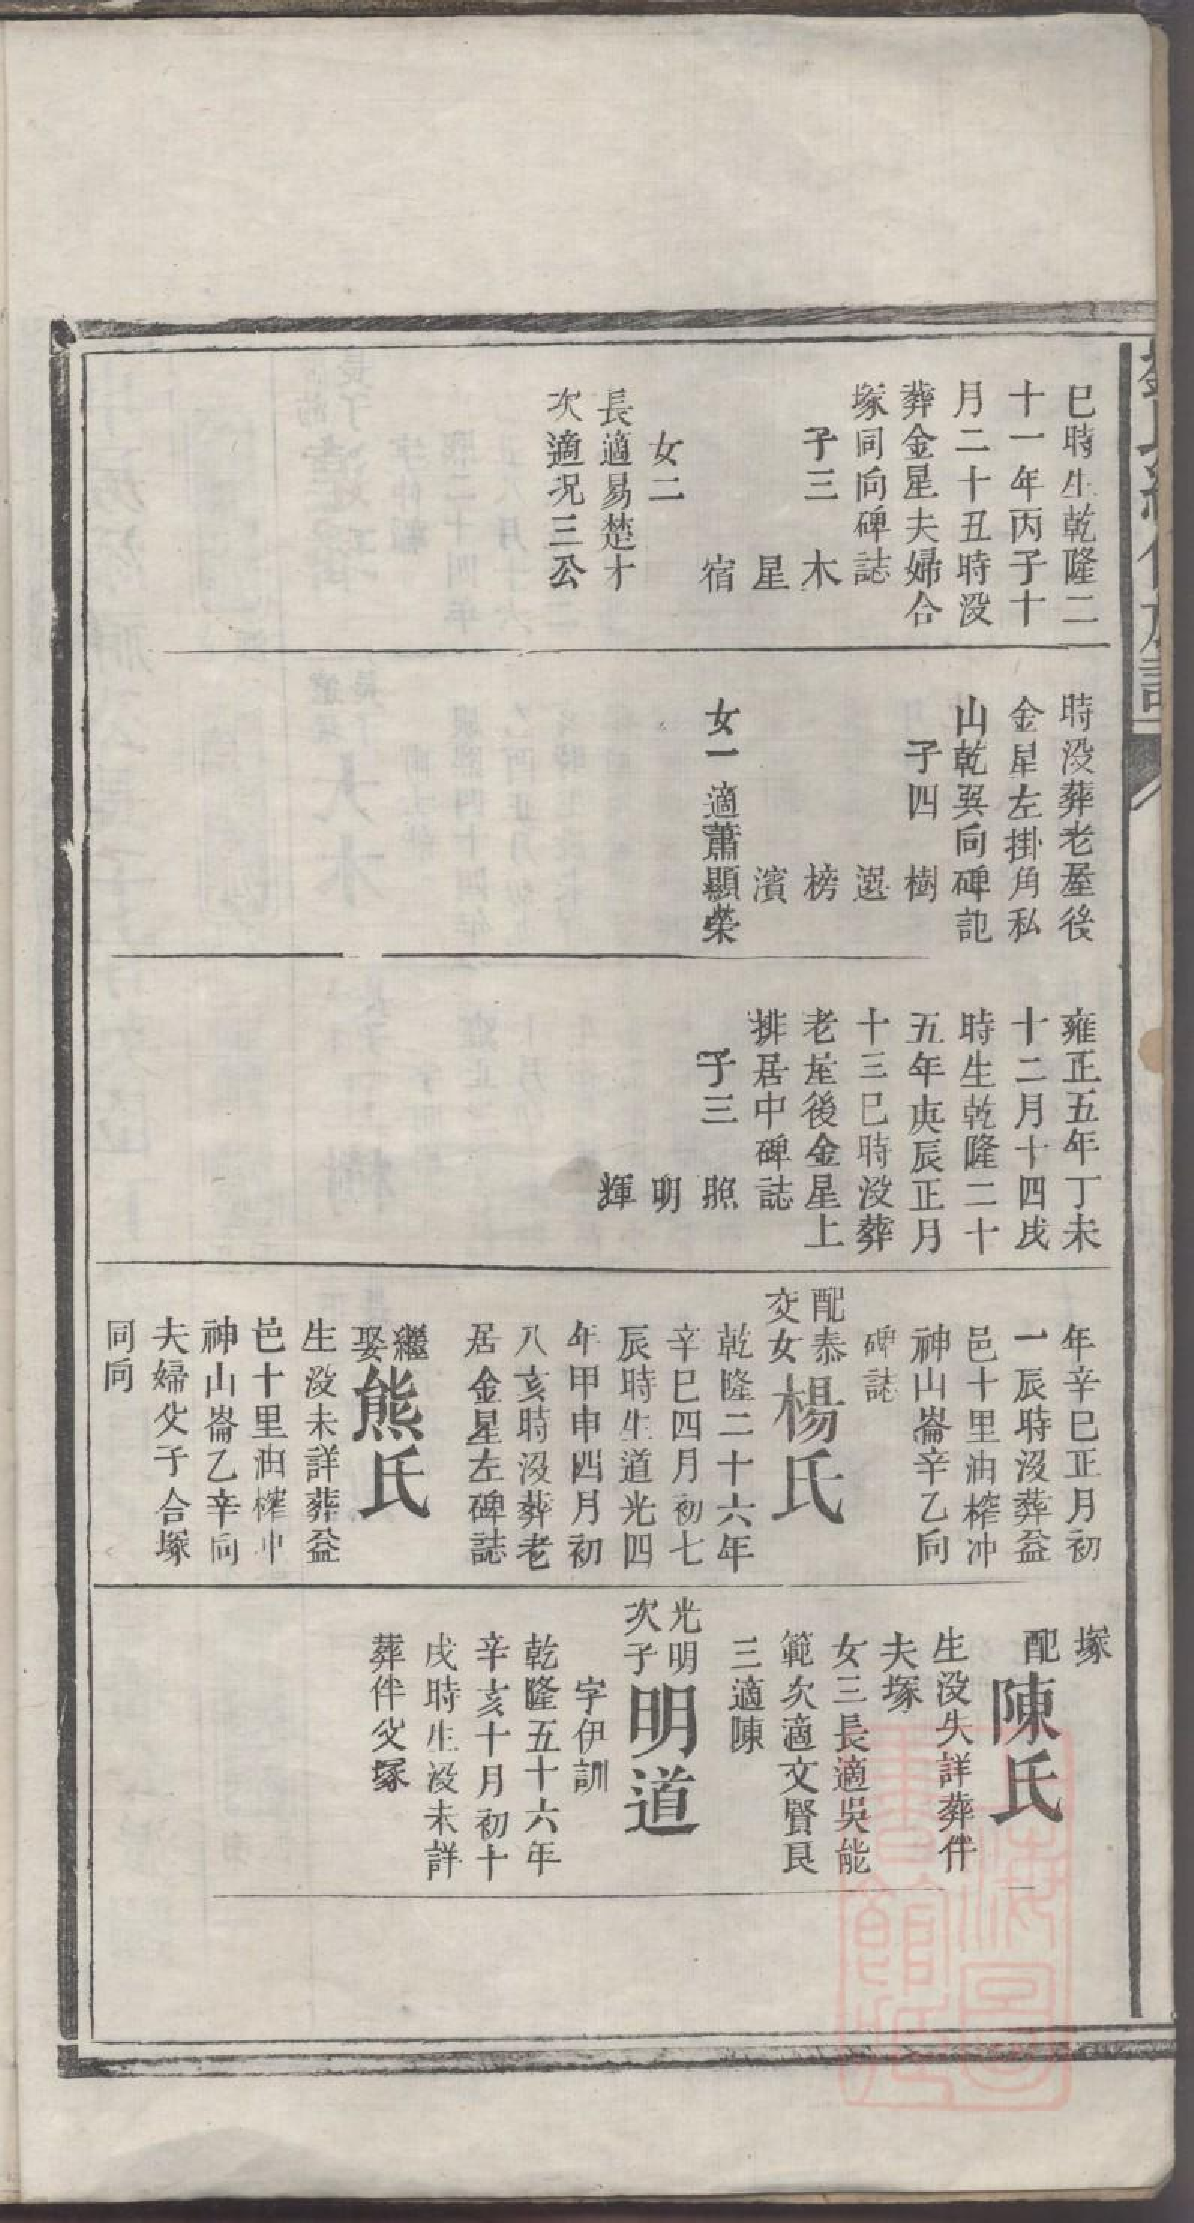 巳時生乾隆二
十一年丙子十
月二十丑時没
葬金星夫婦合
塚同向碑誌
子三 木
星
宿
女二
長適易楚才
次適况三公
時没葬老屋後
金星左掛角私
山乾巽向碑記
子四 樹
選
榜
濱
女一適蕭顯榮
雍正五年丁未
十二月十四戌
時生乾隆二十
五年庚辰正月
十三巳時没葬
老屋後金星上
排居中碑誌
子三 照
明
輝
年辛巳正月初
一辰時没葬益
邑十里油榨冲
神山崙辛乙向
碑誌
配泰
交女楊氏
乾隆二十六年
辛巳四月初七
辰時生道光四
年甲申四月初
八亥時没葬老
居金星左碑誌
繼
娶熊氏
生没未詳葬益
邑十里油榨冲
神山崙乙辛向
夫婦父子合塚
同向
塚
配陳氏
生没失詳葬伴
夫塚
女三長適吳能
範次適文賢良
三適陳
光明
次子明道
字伊訓
乾隆五十六年
辛亥十月初十
戌時生没未詳
葬伴父塚